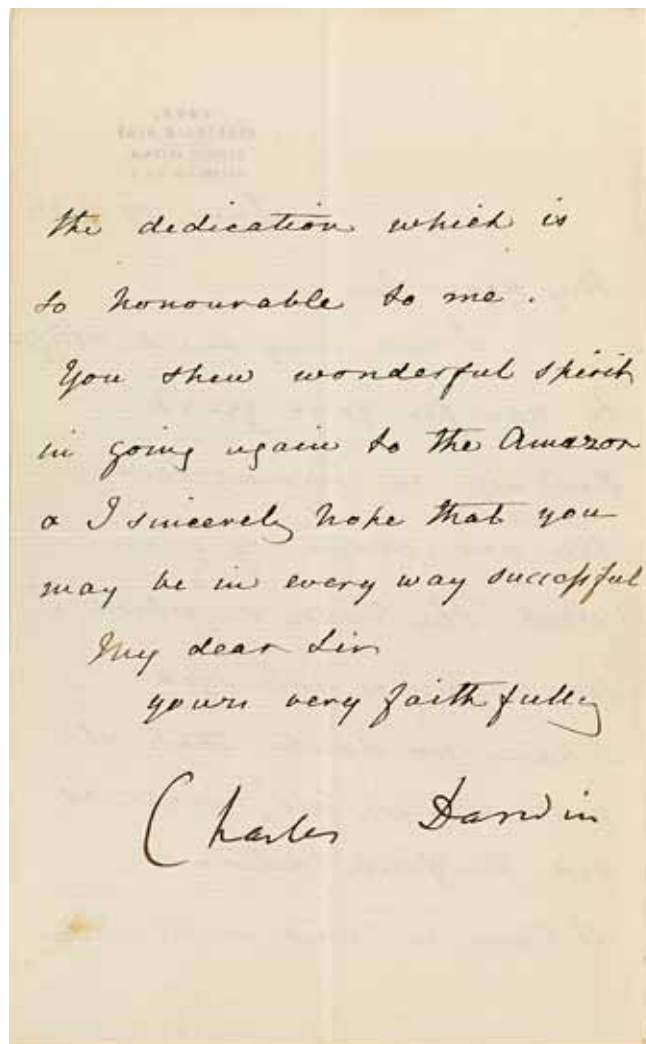 the dedication which is
so honourable to me.
You shew wonderful spirit
in going again to the Amazon
& I sincerely hope that you
may be in every way successful
My dear Sir
yours very faithfully
Charles Darwin